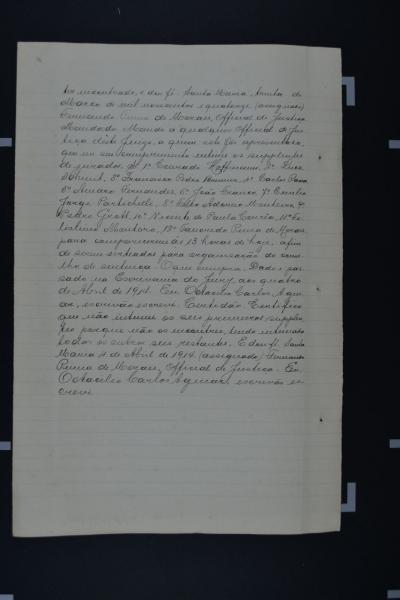 ter encontrado, e dou fé. Santa Maria, trinta de
Março de mil novecentos e quatorze (assignado)
Fernando Penna de Moraes, Official de Justiça
Mandado Mando a qualquer Official de Jus-
tiça deste Juizo, a quem este for apresentado,
que em seu cumprimento intime os supplentes
de jurados, 1º Conrado Hoffmann, 2º
3º Francisco Pedro 4º Carlos
5º Amaro Fernandes, 6º João Franco, 7º
Jorge 8º Pedro Antonio Monteiro, 9º
Pedro 10º Vicente de Paula Corrêa, 11º
Monteiro, 12º Penna de Moraes,
para comparecerem ás 13 horas de hoje, afim
de serem sorteados para organisação do conse-
lho de sentença. O que cumpra. Dado e pas-
sado na Escrivania do Jury, aos quatro
de Abril de 1914. Eu, Octacilio Carlos Agui-
ar, escrivão escrevi. Certidão Certifico
que não intimei os seis primeiros supplen-
tes porque não os encontrei, tendo intimado
todos os outros seis restantes. E dou fé. Santa
Maria 4 de Abril de 1914. (assignado) Fernando
Penna de Moraes, Official de Justiça. Eu,
Octacilio Carlos Aguiar, escrivão es-
crevi